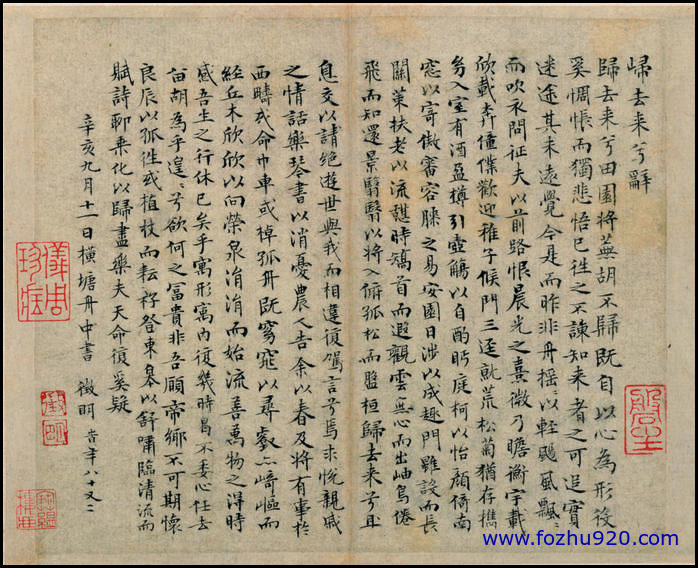 歸去来兮辭
歸去来兮田園將蕪胡不歸既自以心為形役
奚惆悵而獨悲悟已徃之不諫知来者之可追實
迷途其未遠覺今是而昨非舟摇〻以輕颺風飄〻
而吹衣問征夫以前路恨晨光之熹微乃瞻衡宇載
欣載奔僮僕歡迎稚子候門三逕就荒松菊猶存携
幼入室有酒盈樽引壺觴以自酌眄庭柯以怡顔倚南
窓以寄傲審容膝之易安園日涉以成趣門雖設而長
關策扶老以流憩時矯首而遐觀雲無心而出岫鳥倦
飛而知還景翳翳以將入俯孤松而盤桓歸去来兮且
息交以請絶遊世與我而相違復駕言兮焉求悅親戚
之情話樂琴書以消憂農人告余以春及將有事於
西疇或命巾車或棹孤舟既窈窕以尋壑亦崎嶇而
經丘木欣欣以向榮泉涓涓而始流善萬物之得時
感吾生之行休已矣乎寓形寓内復幾時曷不委心任去
留胡為乎遑〻兮欲何之冨貴非吾願帝鄉不可期懷
良辰以孤徃或植杖而耘耔登東皋以舒嘯臨清流而
賦詩聊乗化以歸盡樂夫天命復奚疑
辛亥九月十一日横塘舟中書 徵明 時年八十又二
儀周珍藏
徵明
www.fozhu920.com